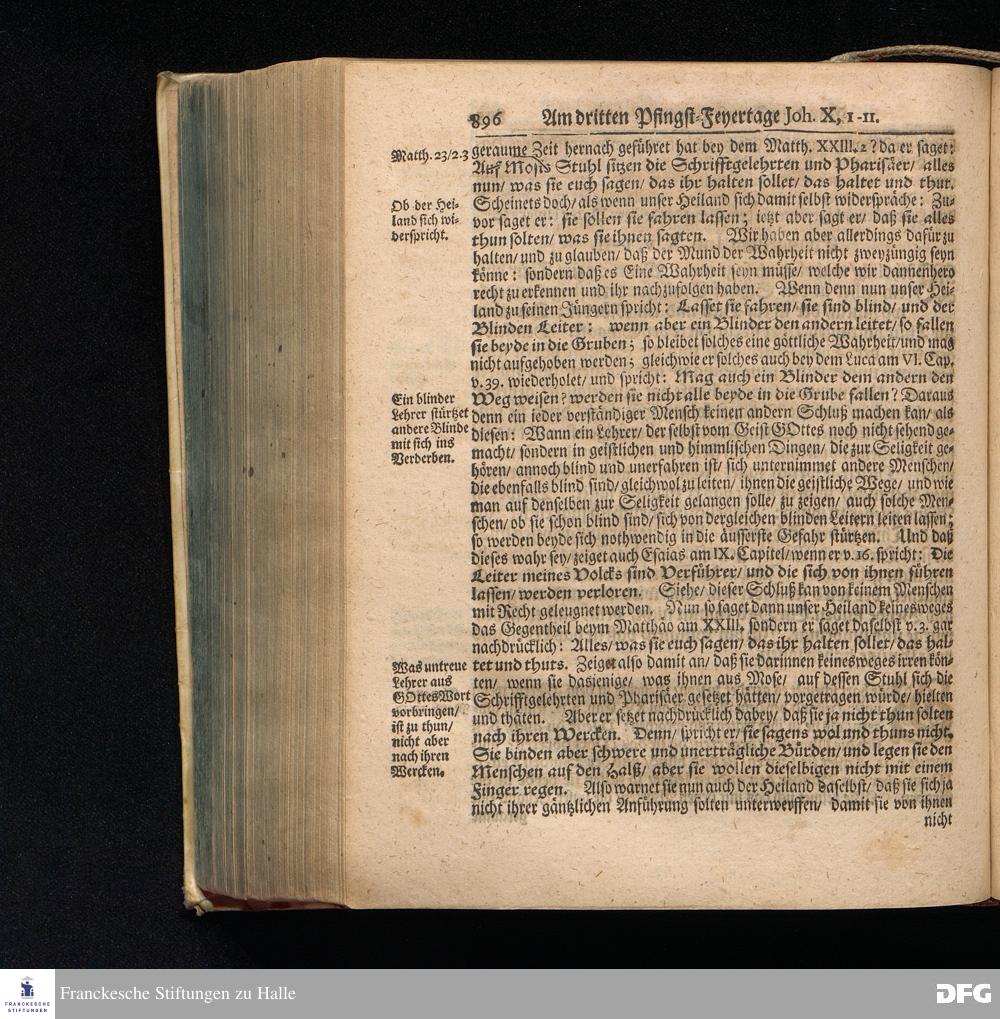 896 Am dritten Pfingst-Feyertage Joh. X, 1-11.
Matth. 23/2.3
geraume Zeit hernach geführet hat bey dem Matth. XXIII. 2? da er saget:
Auf Mosis Stuhl sitzen die Schrifftgelehrten und Pharisäer/ alles
nun/ was sie euch sagen/ das ihr halten sollet/ das haltet und thut.
Ob der Hei-
land sich wi-
derspricht.
Scheinets doch/ als wenn unser Heiland sich damit selbst widerspräche: Zu-
vor saget er: sie sollen sie fahren lassen; ietzt aber sagt er/ daß sie alles
thun solten/ was sie ihnen sagten. Wir haben aber allerdings dafür zu
halten/ und zu glauben/ daß der Mund der Wahrheit nicht zweyzüngig seyn
könne: sondern daß es Eine Wahrheit seyn müsse/ welche wir dannenhero
recht zu erkennen und ihr nachzufolgen haben. Wenn denn nun unser Hei-
land zu seinen Jüngern spricht: Lasset sie fahren/ sie sind blind/ und der
Blinden Leiter: wenn aber ein Blinder den andern leitet/ so fallen
sie beyde in die Gruben; so bleibet solches eine göttliche Wahrheit/ und mag
nicht aufgehoben werden; gleichwie er solches auch bey dem Luca am VI. Cap.
v. 39. wiederholet/ und spricht: Mag auch ein Blinder dem andern den
Weg weisen? werden sie nicht alle beyde in die Grube fallen? Daraus
Ein blinder
Lehrer stürtzet
andere Blinde
mit sich ins
Verderben.
denn ein ieder verständiger Mensch keinen andern Schluß machen kan/ als
diesen: Wann ein Lehrer/ der selbst vom Geist GOttes noch nicht sehend ge-
macht/ sondern in geistlichen und himmlischen Dingen/ die zur Seligkeit ge-
hören/ annoch blind und unerfahren ist/ sich unternimmet andere Menschen/
die ebenfalls blind sind/ gleichwol zu leiten/ ihnen die geistliche Wege/ und wie
man auf denselben zur Seligkeit gelangen solle/ zu zeigen/ auch solche Men-
schen/ ob sie schon blind sind/ sich von dergleichen blinden Leitern leiten lassen;
so werden beyde sich nothwendig in die äusserste Gefahr stürtzen. Und daß
dieses wahr sey/ zeiget auch Esaias am IX. Capitel/ wenn er v. 16. spricht: Die
Leiter meines Volcks sind Verführer/ und die sich von ihnen führen
lassen/ werden verloren. Siehe/ dieser Schluß kan von keinem Menschen
mit Recht geleugnet werden. Nun so saget dann unser Heiland keinesweges
das Gegentheil beym Matthäo am XXIII. sondern er saget daselbst v. 3. gar
nachdrücklich: Alles/ was sie euch sagen/ das ihr halten sollet/ das hal-
Was untreue
Lehrer aus
GOttes Wort
vorbringen/
ist zu thun/
nicht aber
nach ihren
Wercken.
tet und thuts. Zeiget also damit an/ daß sie darinnen keinesweges irren kön-
ten/ wenn sie dasjenige/ was ihnen aus Mose/ auf dessen Stuhl sich die
Schrifftgelehrten und Pharisäer gesetzet hätten/ vorgetragen würde/ hielten
und thäten. Aber er setzet nachdrücklich dabey/ daß sie ja nicht thun solten
nach ihren Wercken. Denn/ spricht er/ sie sagens wol und thuns nicht.
Sie binden aber schwere und unerträgliche Bürden/ und legen sie den
Menschen auf den Halß/ aber sie wollen dieselbigen nicht mit einem
Finger regen. Also warnet sie nun auch der Heiland daselbst/ daß sie sich ja
nicht ihrer gäntzlichen Anführung solten unterwerffen/ damit sie von ihnen
nicht
FRANCKESCHE
STIFTUNGEN
Franckesche Stiftungen zu Halle
DFG